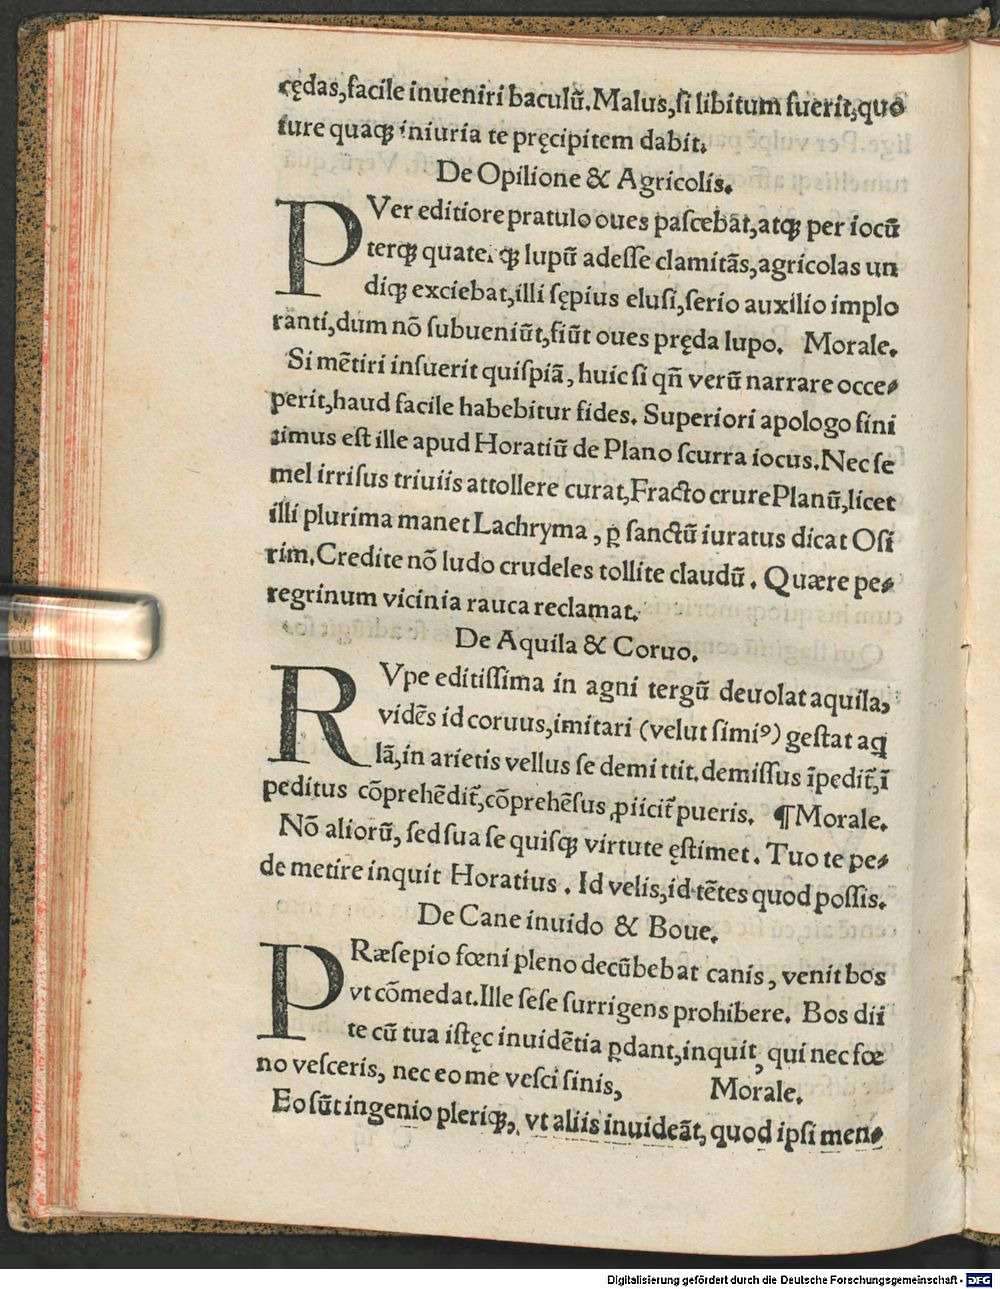 cędas,facile inueniri baculũ.Malus,ſi libitum fuerit,quo
iure quaqꝫ iniuria te pręcipitem dabit.
De Opilione & Agricolis.
PVer editiore pratulo oues paſcebãt,atqꝫ per iocũ
terqꝫ quaterqꝫ lupũ adeſſe clamitãs,agricolas un
diqꝫ exciebat,illi ſępius eluſi,ſerio auxilio implo
ranti,dum nõ ſubueniũt,fiũt oues pręda lupo. Morale.
Si mẽtiri inſuerit quiſpiã, huic ſi qñ verũ narrare occe⸗
perit,haud facile habebitur fides. Superiori apologo fini
timus eſt ille apud Horatiũ de Plano ſcurra iocus.Nec ſe
mel irriſus triuiis attollere curat,Fracto crure Planũ,licet
illi plurima manet Lachryma , ꝑ ſanctũ iuratus dicat Oſi
rim.Credite nõ ludo crudeles tollite claudũ. Quære pe⸗
regrinum vicinia rauca reclamat.
De Aquila & Coruo.
RVpe editiſſima in agni tergũ deuolat aquila,
vidẽs id coruus,imitari (velut ſimiꝰ) geſtat aq̃
lã,in arietis vellus ſe demittit.demiſſus ĩpedit̃,ĩ
peditus cõprehẽdit̃,cõprehẽſus ꝓiicit̃ pueris. ¶Morale.
Nõ aliorũ, ſed ſua ſe quiſqꝫ virtute ęſtimet. Tuo te pe⸗
de metire inquit Horatius . Id velis,id tẽtes quod poſſis.
De Cane inuido & Boue.
PRæſepio fœni pleno decũbebat canis, venit bos
vt cõmedat.Ille ſeſe ſurrigens prohibere. Bos dii
te cũ tua iſtęc inuidẽtia ꝑdant,inquit, qui nec fœ
no veſceris, nec eo me veſci ſinis, Morale.
Eo ſũt ingenio pleriqꝫ, vt aliis inuideãt, quod ipſi men⸗
Digitalisierung gefördert durch die Deutsche Forschungsgemeinschaft - DFG